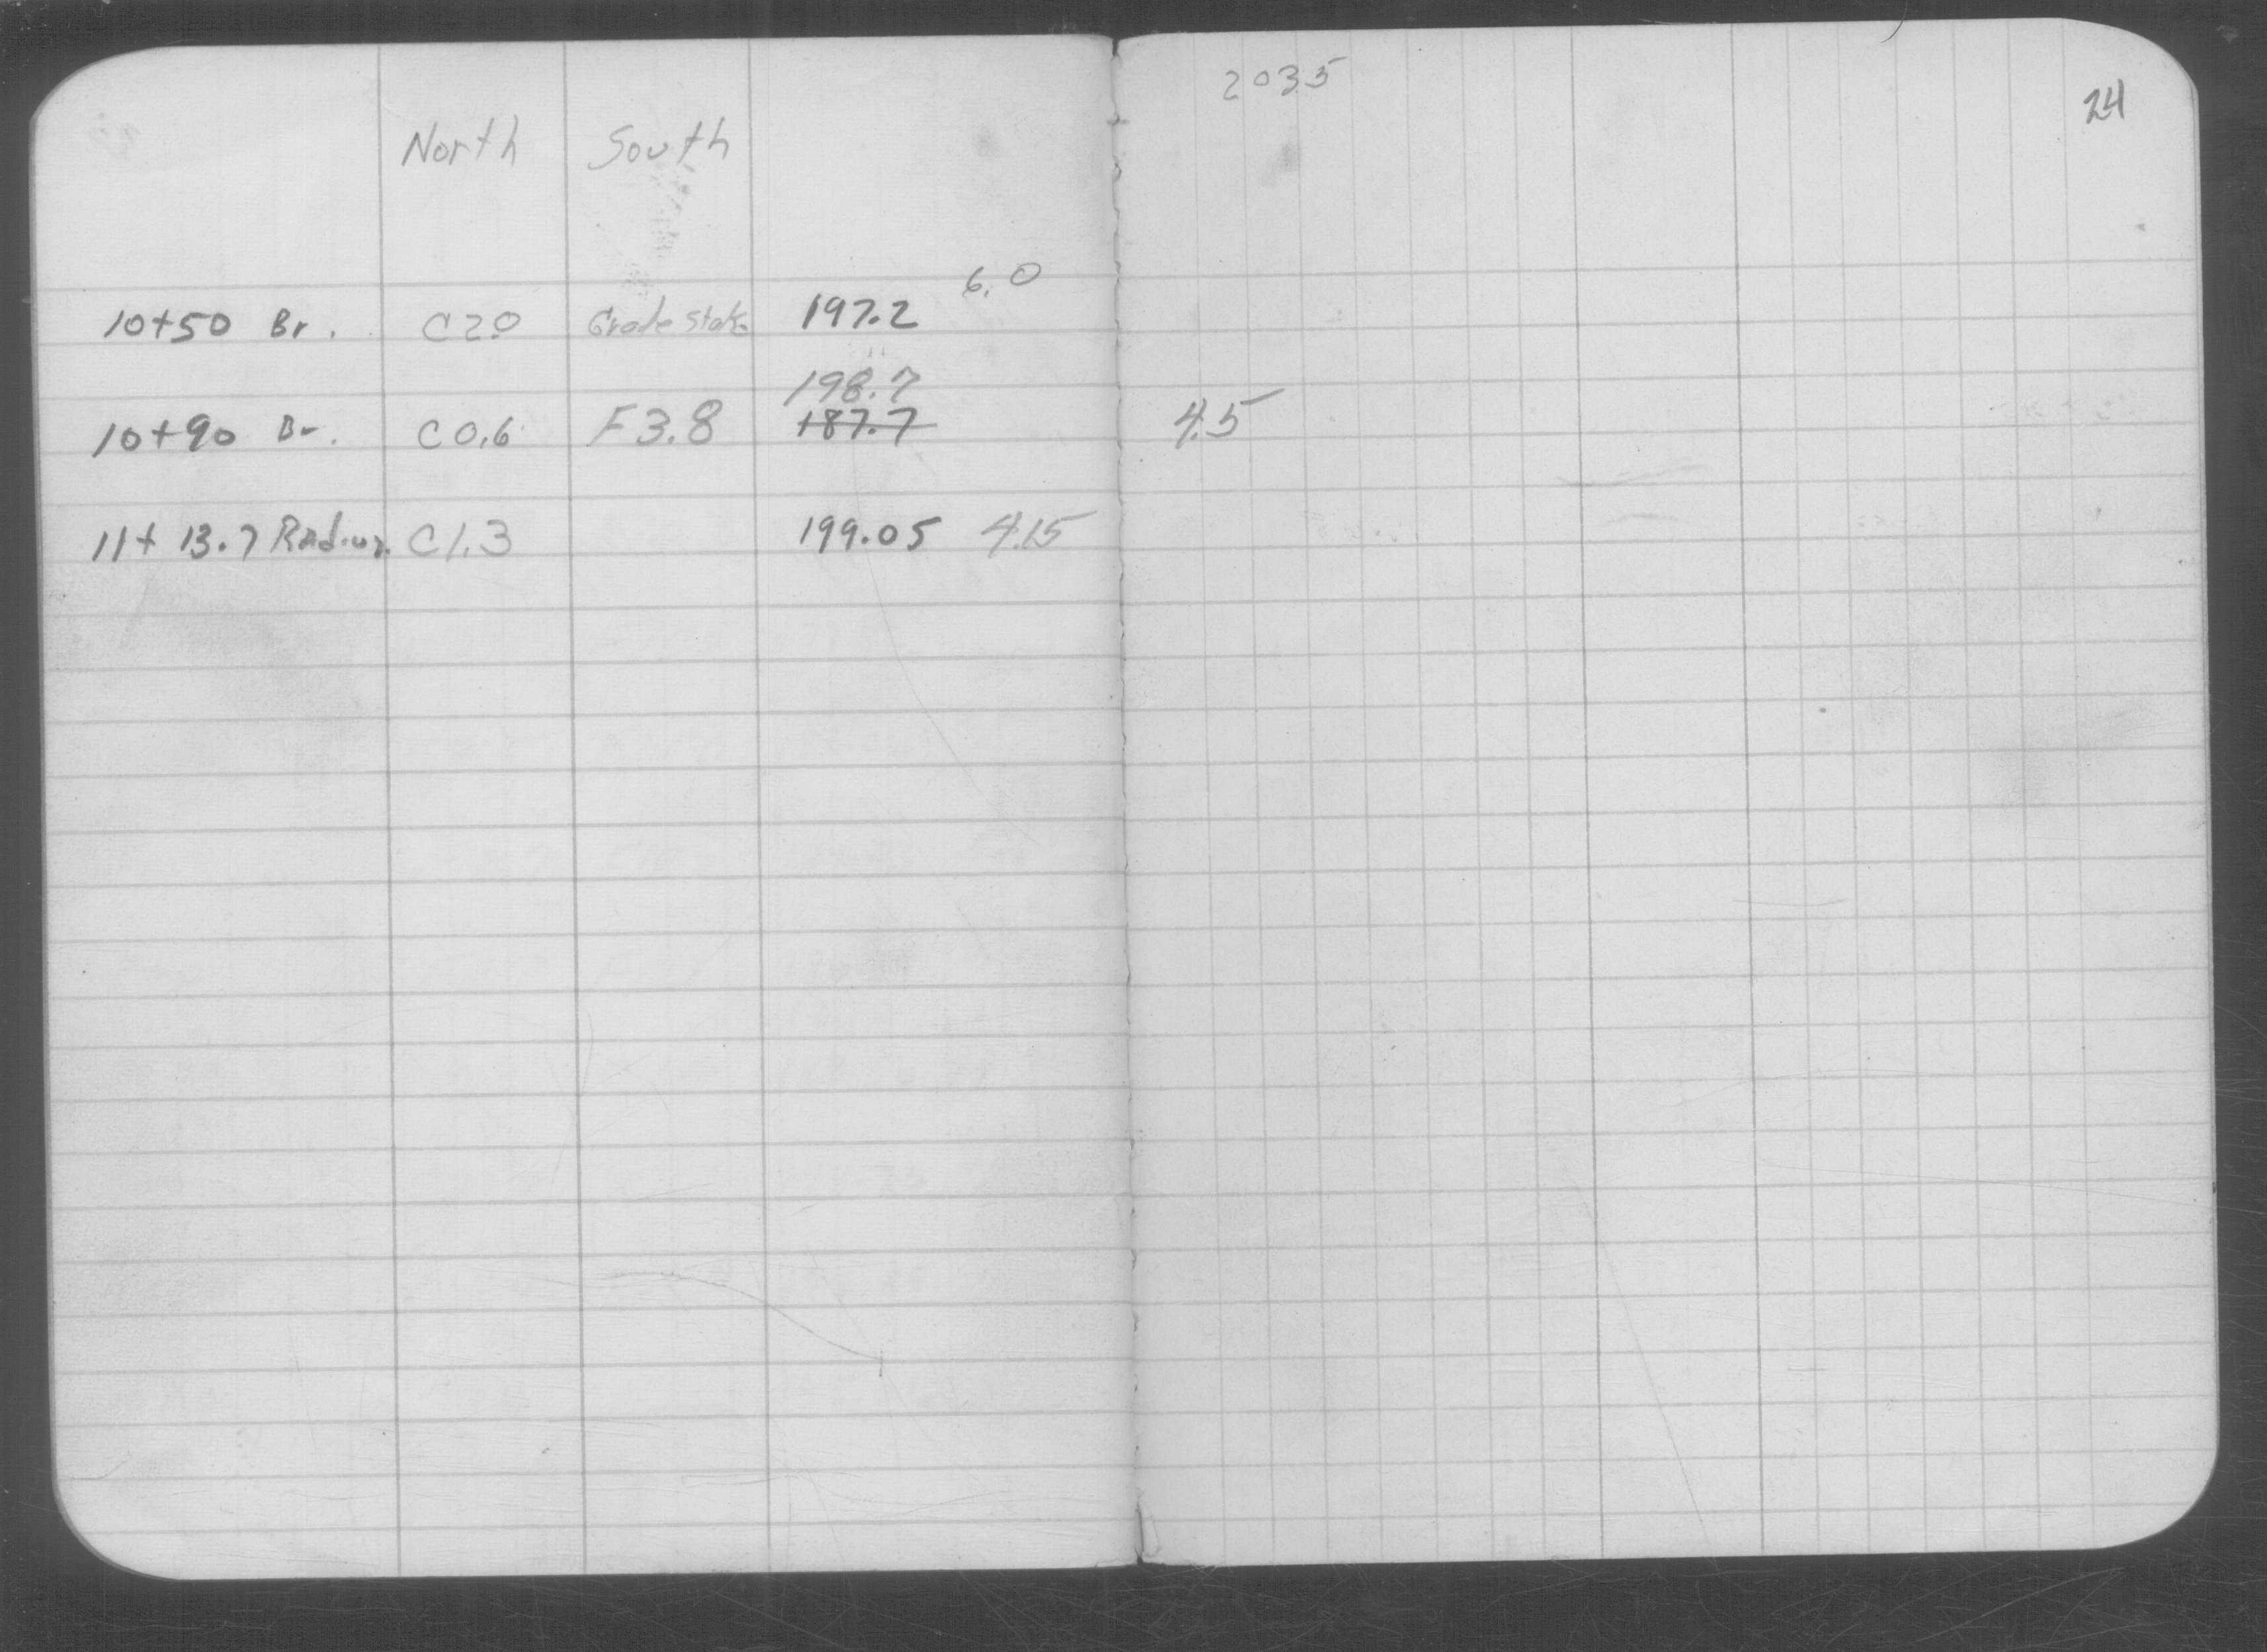 2035
24
North South
6.0
10+50 Br. C 2.0 Grade stake 197.2
198.7
10+90 Br. C 0.6 F 3.8 187.7 4.5
11+ 13.7 Radius. C 1.3 199.05 4.15